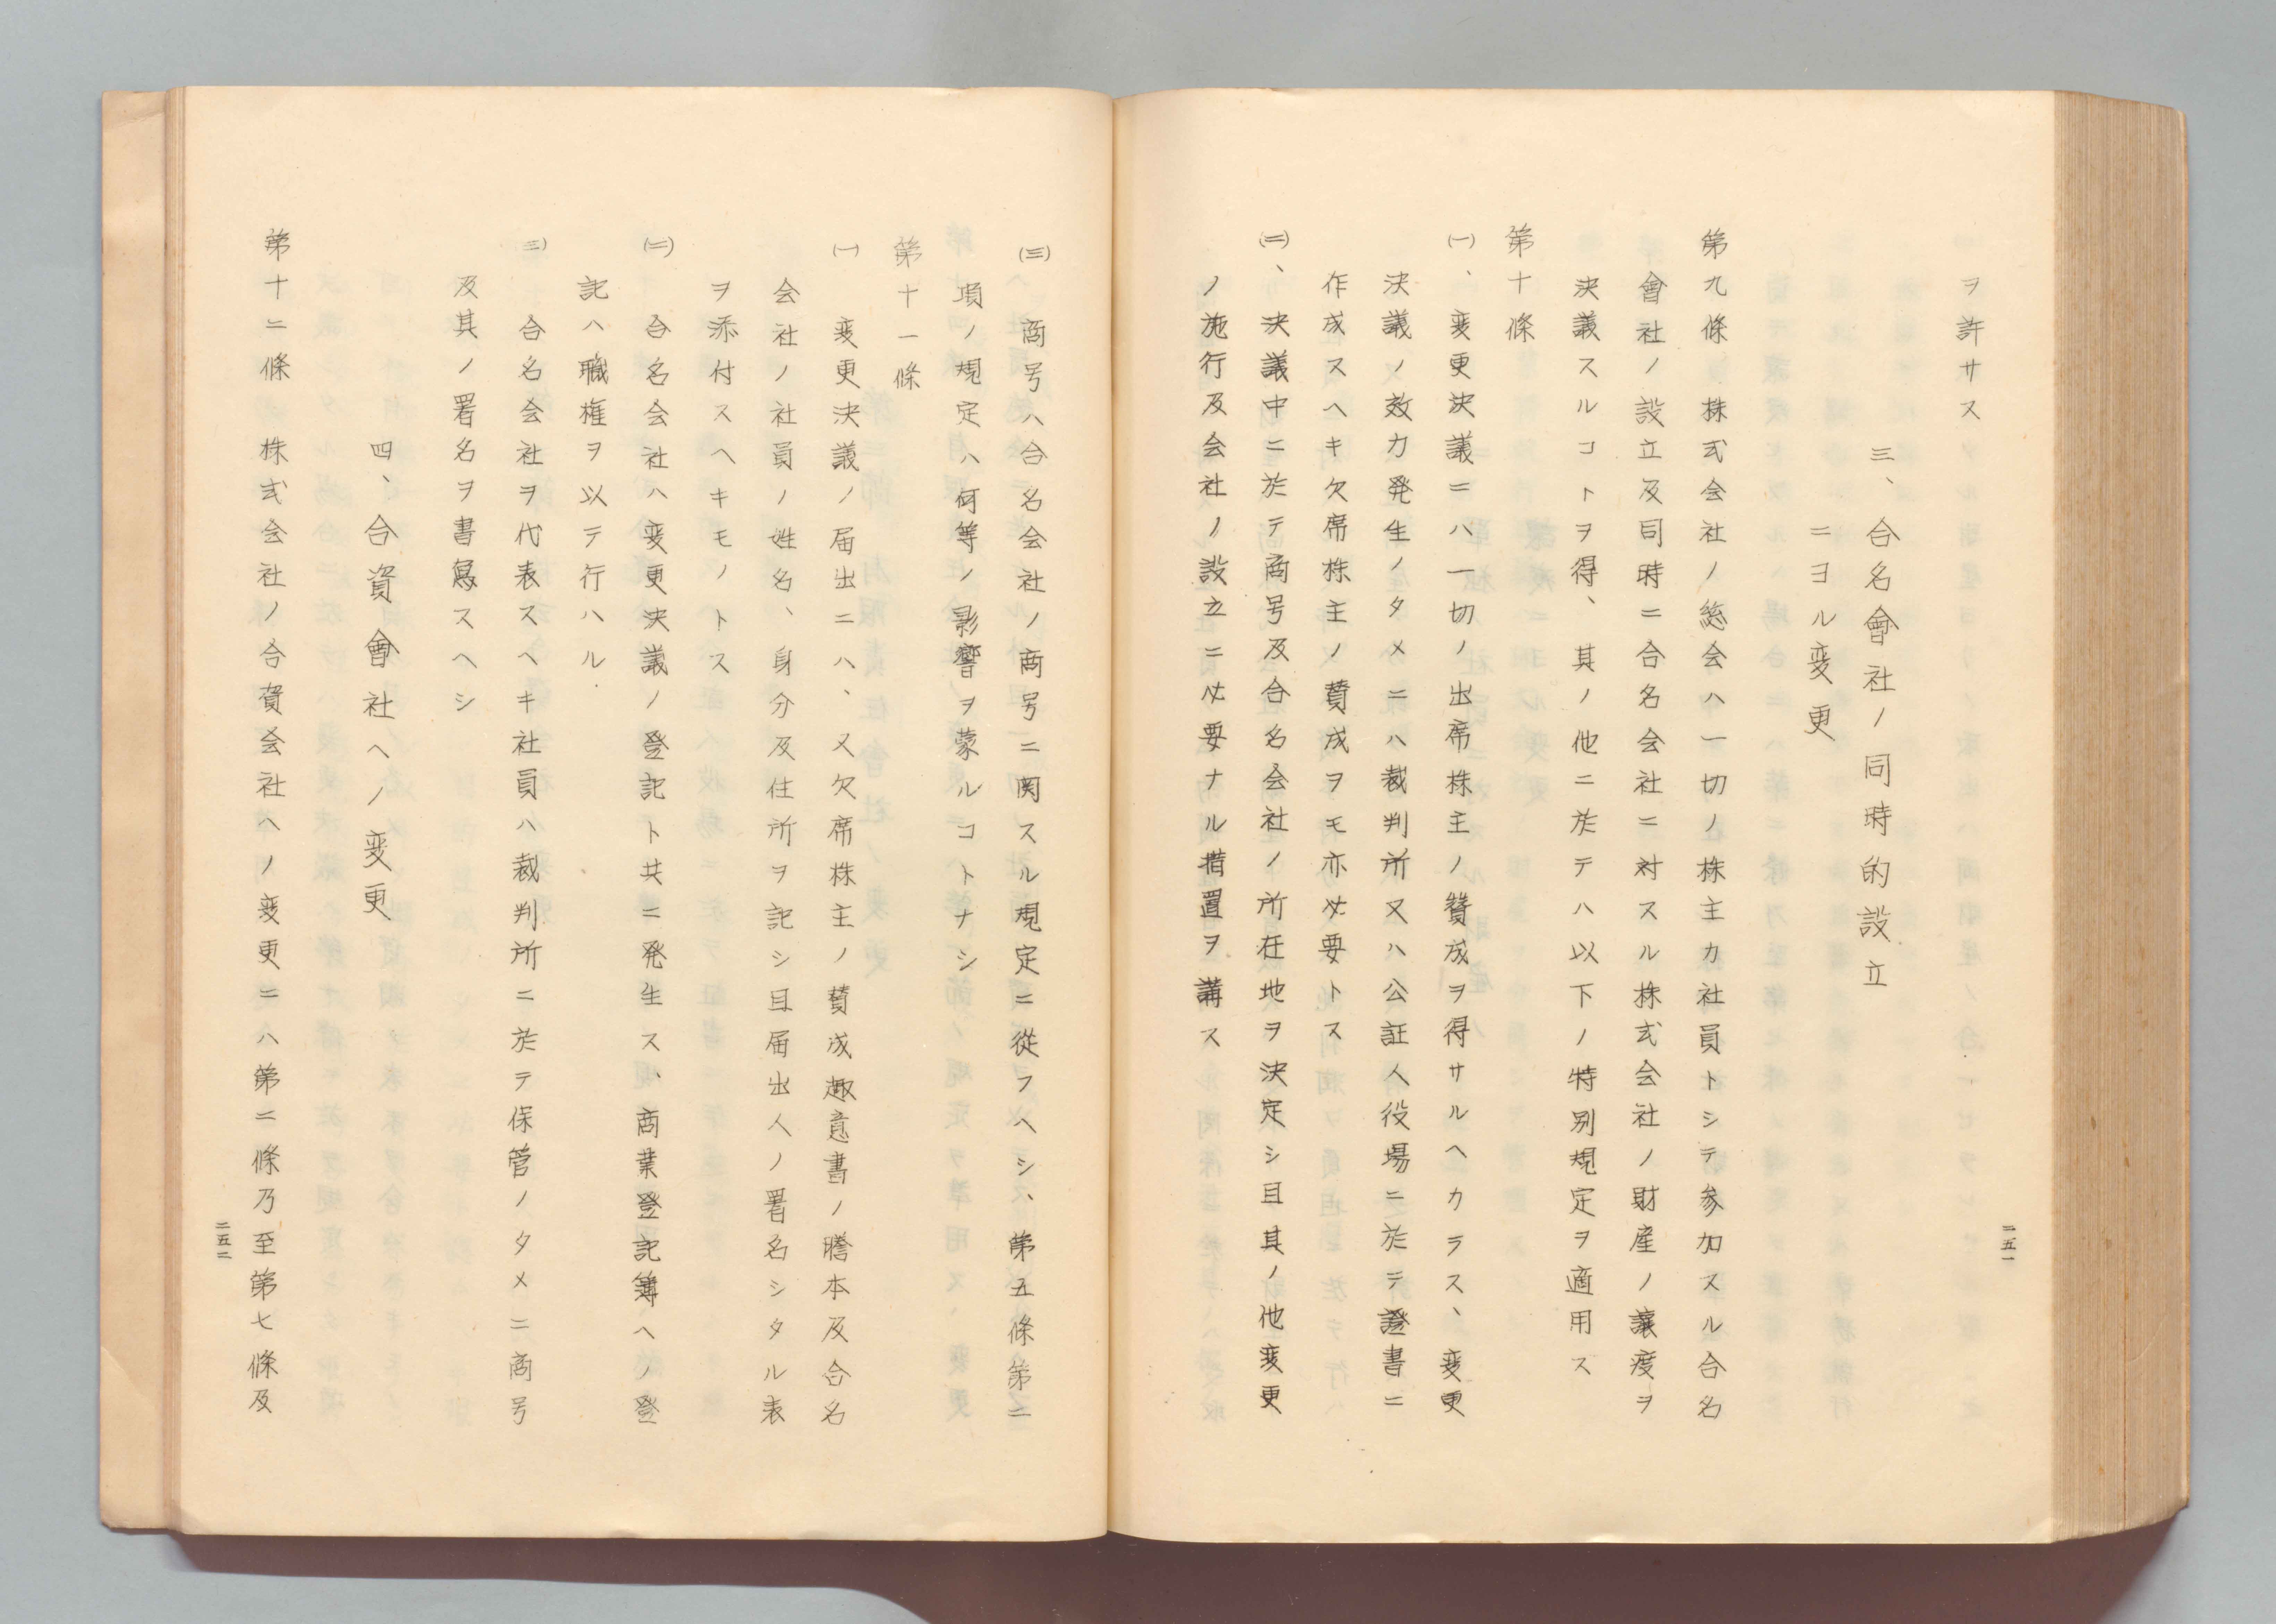 ヲ許サス
三、合名會社ノ同時的設立
ニヨル変更
第九條　株式会社ノ総会ハ一切ノ株主カ社員トシテ参加スル合名
會社ノ設立及同時ニ合名会社ニ対スル株式会社ノ財産ノ譲渡ヲ
決議スルコトヲ得、其ノ他ニ於テハ以下ノ特別規定ヲ適用ス
第十條
(一)、変更決議ニハ一切ノ出席株主ノ賛成ヲ得サルヘカラス、変更
決議ノ效力発生ノタメニハ裁判所又ハ公証人役場ニ於テ證書ニ
作成スヘキ欠席株主ノ賛成ヲモ亦必要トス
(二)、決議中ニ於テ商号及合名会社ノ所在地ヲ決定シ且其ノ他変更
ノ施行及会社ノ設立ニ必要ナル措置ヲ講ス
二五一
(三)　商号ハ合名会社ノ商号ニ関スル規定ニ従フヘシ、第五條第二
項ノ規定ハ何等ノ影響ヲ蒙ルコトナシ
第十一條
(一)　変更決議ノ届出ニハ、又欠席株主ノ賛成趣意書ノ謄本及合名
会社ノ社員ノ姓名、身分及住所ヲ記シ且届出人ノ署名シタル表
ヲ添付スヘキモノトス
(二)　合名会社ハ変更決議ノ登記ト共ニ発生ス、商業登記簿ヘノ登
記ハ職権ヲ以テ行ハル
(三)　合名会社ヲ代表スヘキ社員ハ裁判所ニ於テ保管ノタメニ商号
及其ノ署名ヲ書寫スヘシ
四、合資會社ヘノ変更
第十二條　株式会社ノ合資会社ヘノ変更ニハ第二條乃至第七條及
二五二